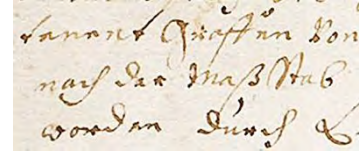 Graffen Von
nach der Maß Stab
worden durch